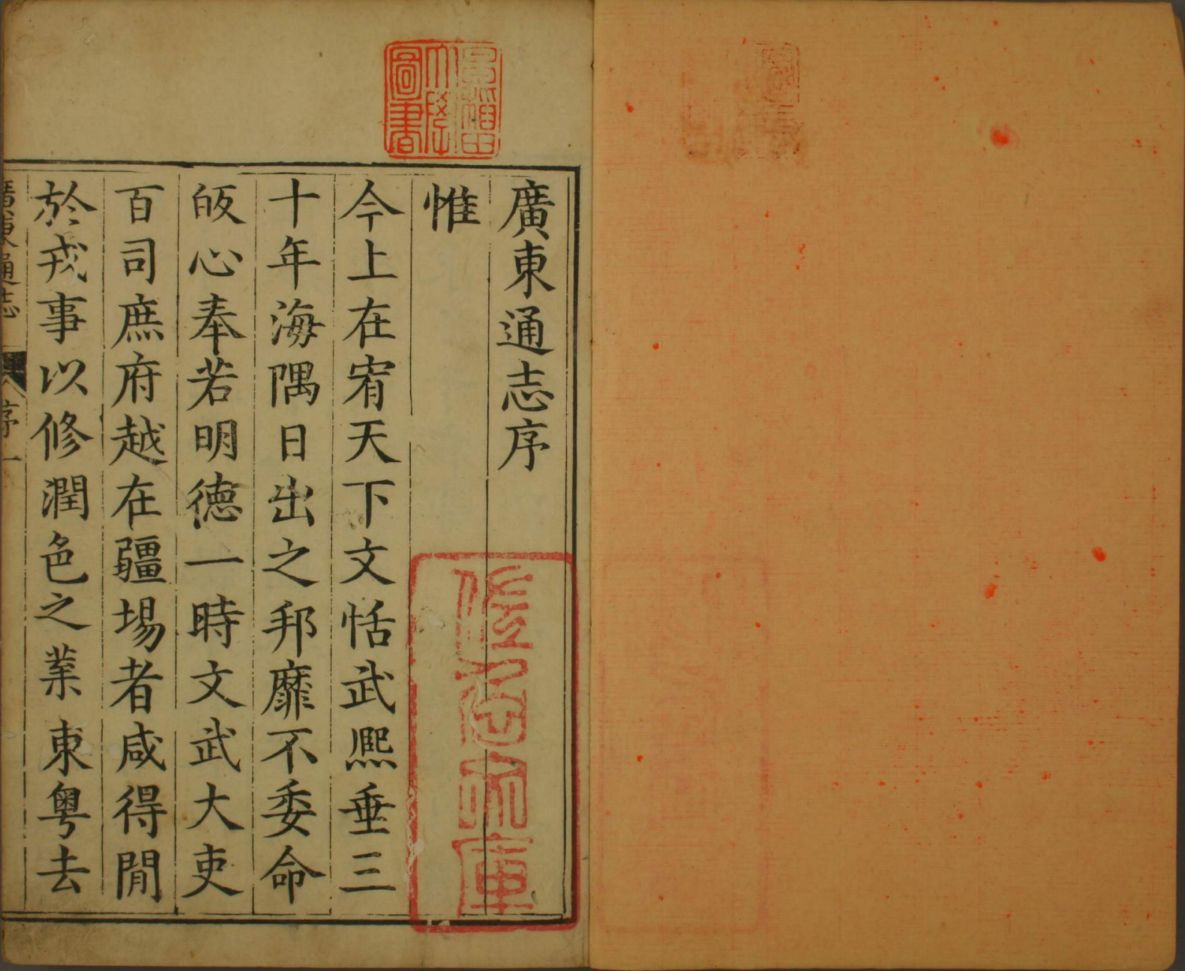 廣東通志序
惟
今上在宥天下文恬武熈垂三
十年海隅日出之邦靡不委命
皈心奉若明德一時文武大吏
百司庶府越在疆埸者咸得閒
於戎事以修潤色之業東粤去
廣東通志
序
一
大學
圖書
庫